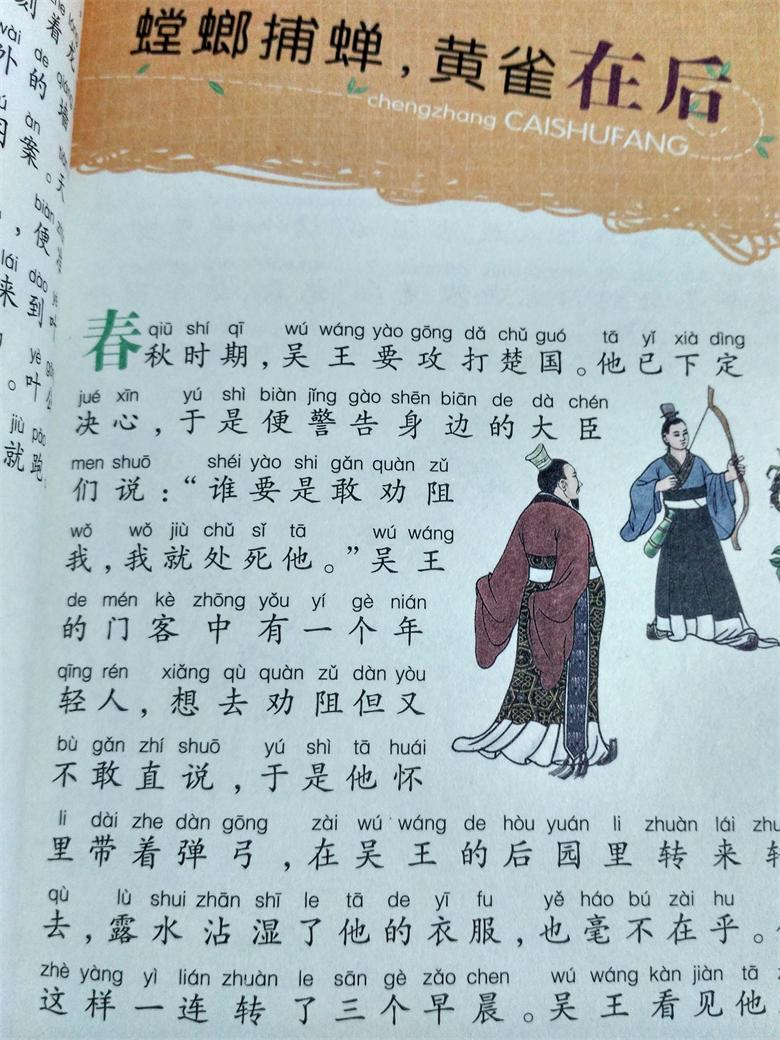 螳螂捕蝉，黄雀在后
chengzhang CAISHUFANG
qiū shí qī wú wáng yào gōng dǎ chǔ guó tā yǐ xià dìng
春秋时期，吴王要攻打楚国。他已下定
jué xīn yú shì biàn jǐng gào shēn biān de dà chén
决心，于是便警告身边的大臣
men shuō shéi yào shi gǎn quàn zǔ
们说：“谁要是敢劝阻
wǒ wǒ jiù chǔ sǐ tā wú wáng
我，我就处死他。”吴王
de mén kè zhōng yǒu yí gè nián
的门客中有一个年
qīng rén xiǎng qù quàn zǔ dàn yòu
轻人，想去劝阻但又
bù gǎn zhí shuō yú shì tā huái
不敢直说，于是他怀
li dài zhe dàn gōng zài wú wáng de hòu yuán li zhuàn lái
里带着弹弓，在吴王的后园里转来
qù lù shui zhān shī le tā de yī fu yě háo bú zài hu
去，露水沾湿了他的衣服，也毫不在乎。
zhè yàng yì lián zhuàn le sān gè zǎo chen wú wáng kàn jiàn tā
这样一连转了三个早晨。吴王看见他
wài de
外的墙
àn
案。
，便
lái dào
来到
。叶
jiù pǎo
就跑